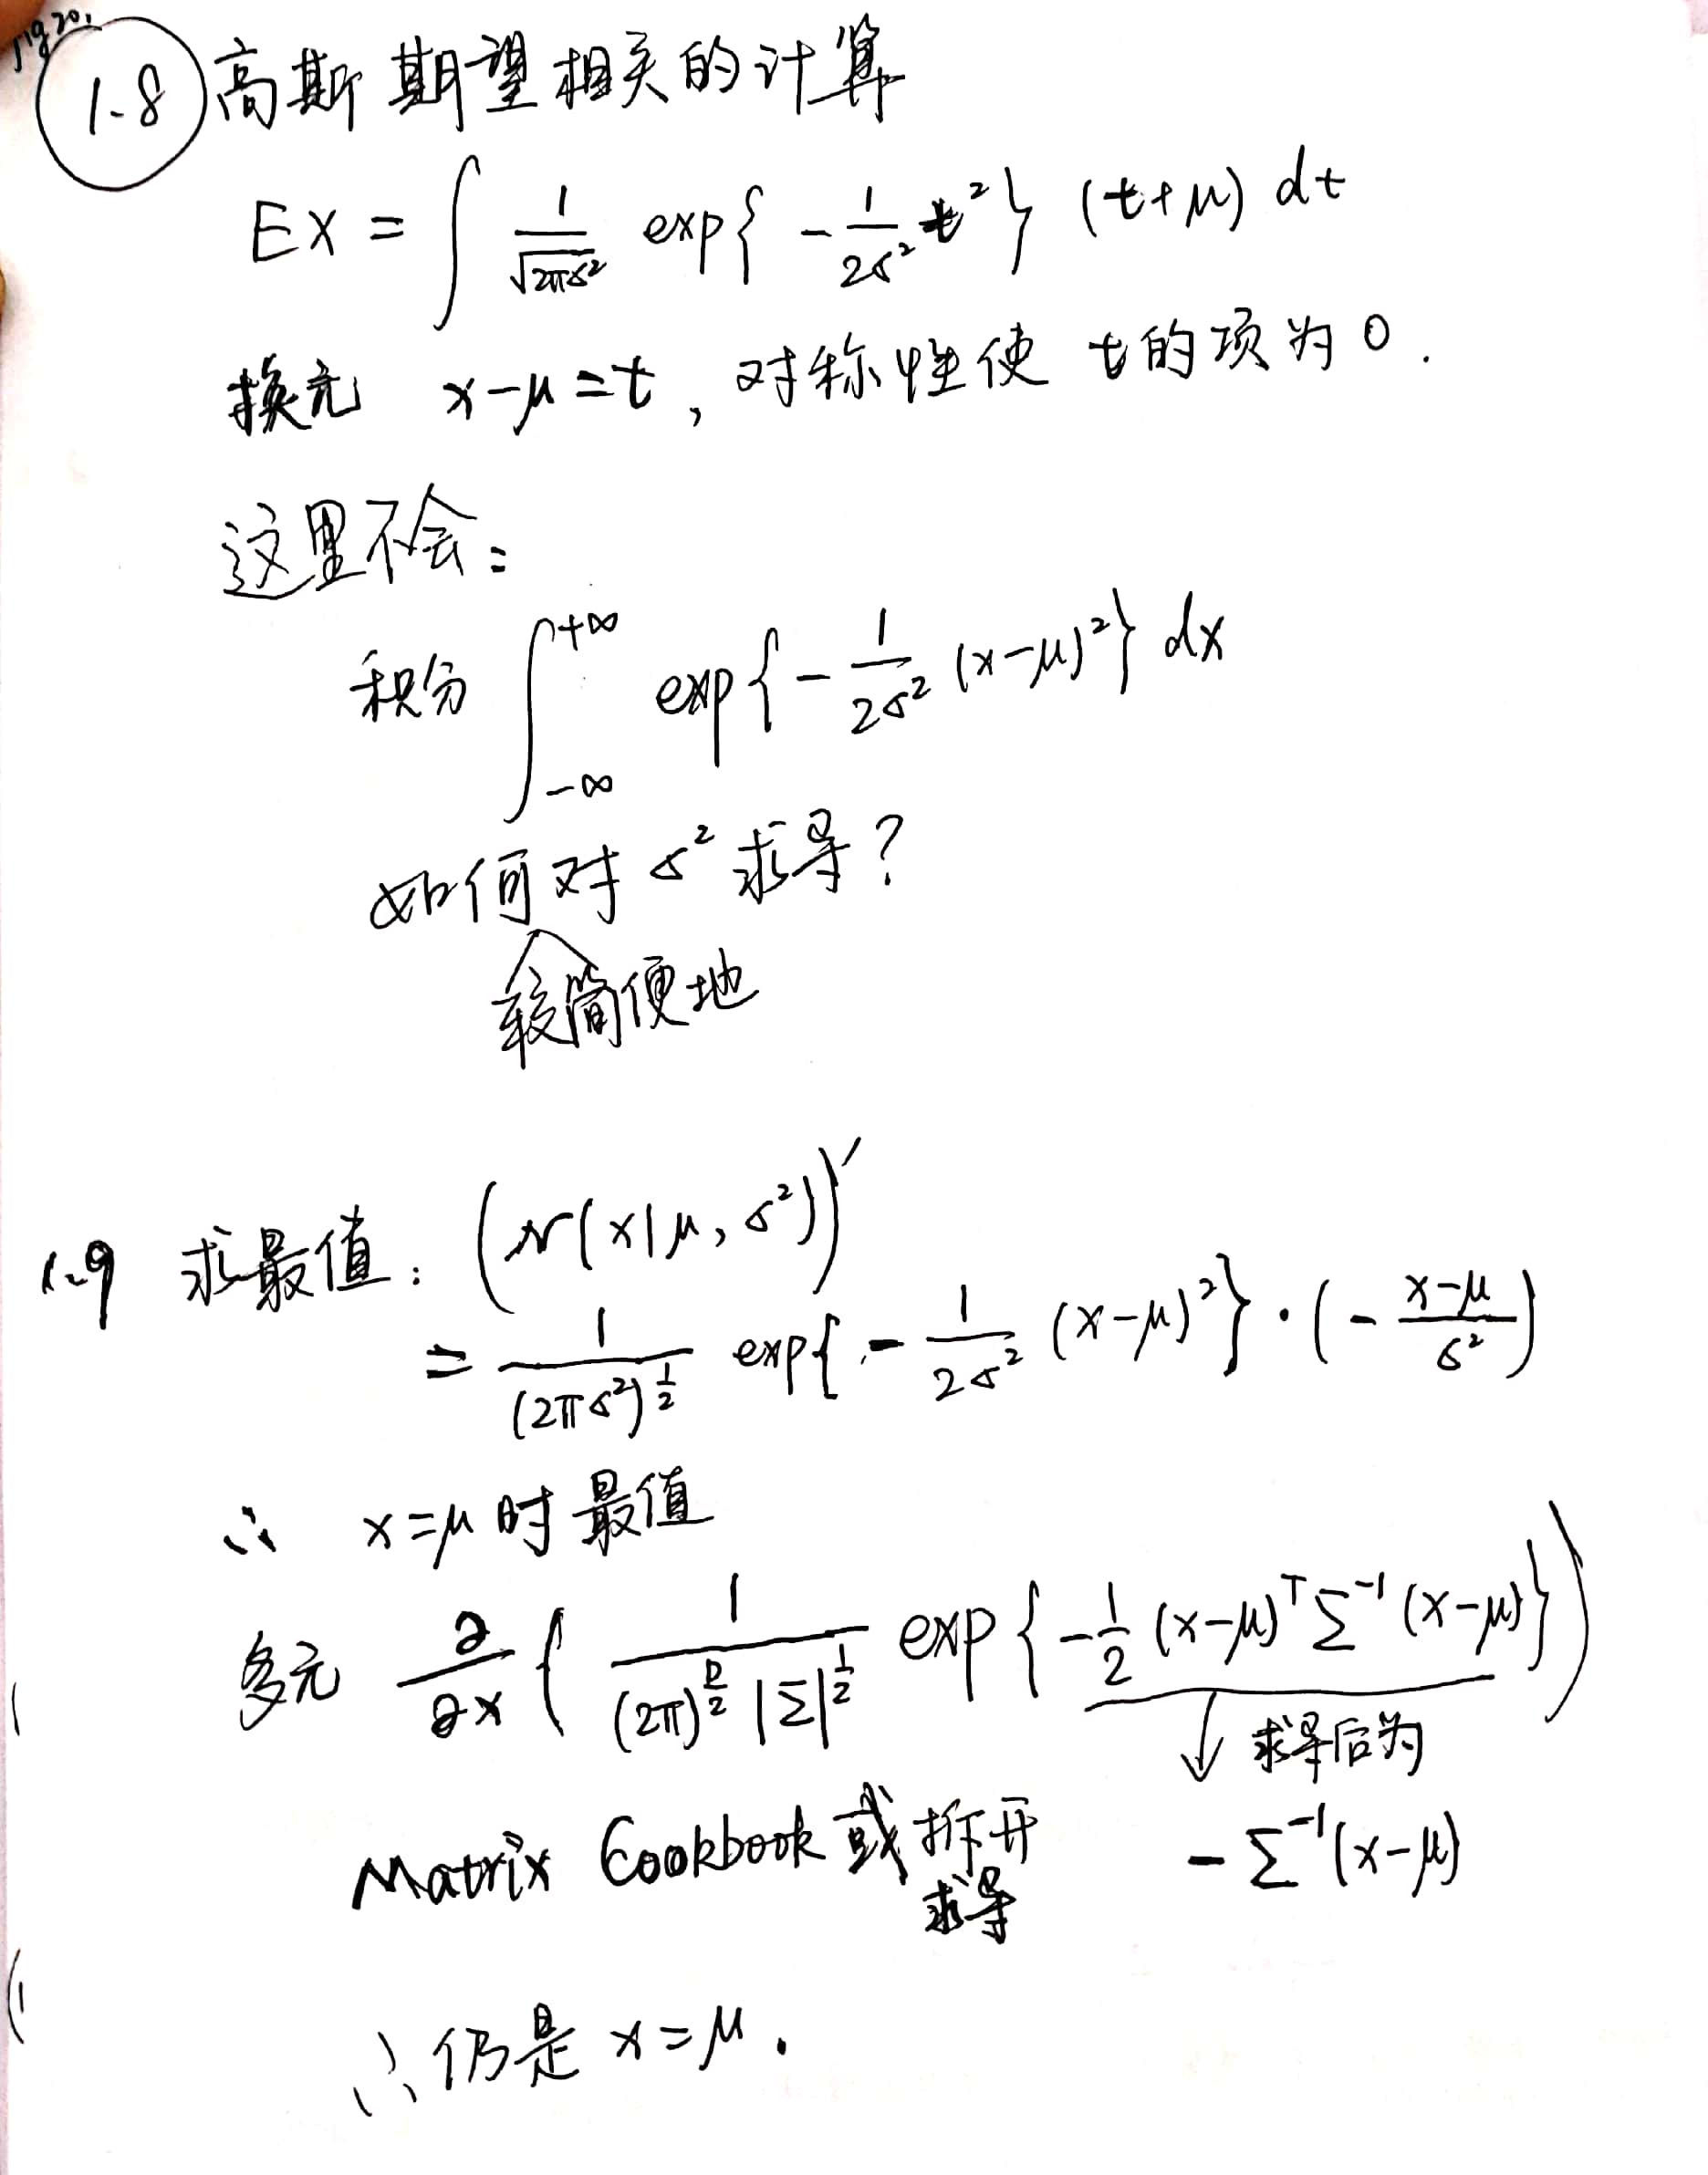 1.8 高斯期望相关的计算
EX = ∫ 1/√(2πσ²) exp{ -1/(2σ²) t² } (t+μ) dt
换元 x-μ=t, 对称性使 t的项为0.
这里不会:
积分 ∫_{-∞}^{+∞} exp{ -1/(2σ²) (x-μ)² } dx
如何对σ²求导?
较简便地
1.9 求最值: (N(x|μ, σ²))′
= 1/(2πσ²)^{1/2} exp{ -1/(2σ²) (x-μ)² } · ( -(x-μ)/σ² )
∴ x=μ时最值
多元 ∂/∂x ( 1/((2π)^{D/2} |Σ|^{1/2}) exp{ -1/2 (x-μ)^T Σ^{-1} (x-μ) } )
↓ 求导后为
Matrix Cookbook 或拆开 -Σ^{-1}(x-μ)
求导
∴ 仍是 x=μ.